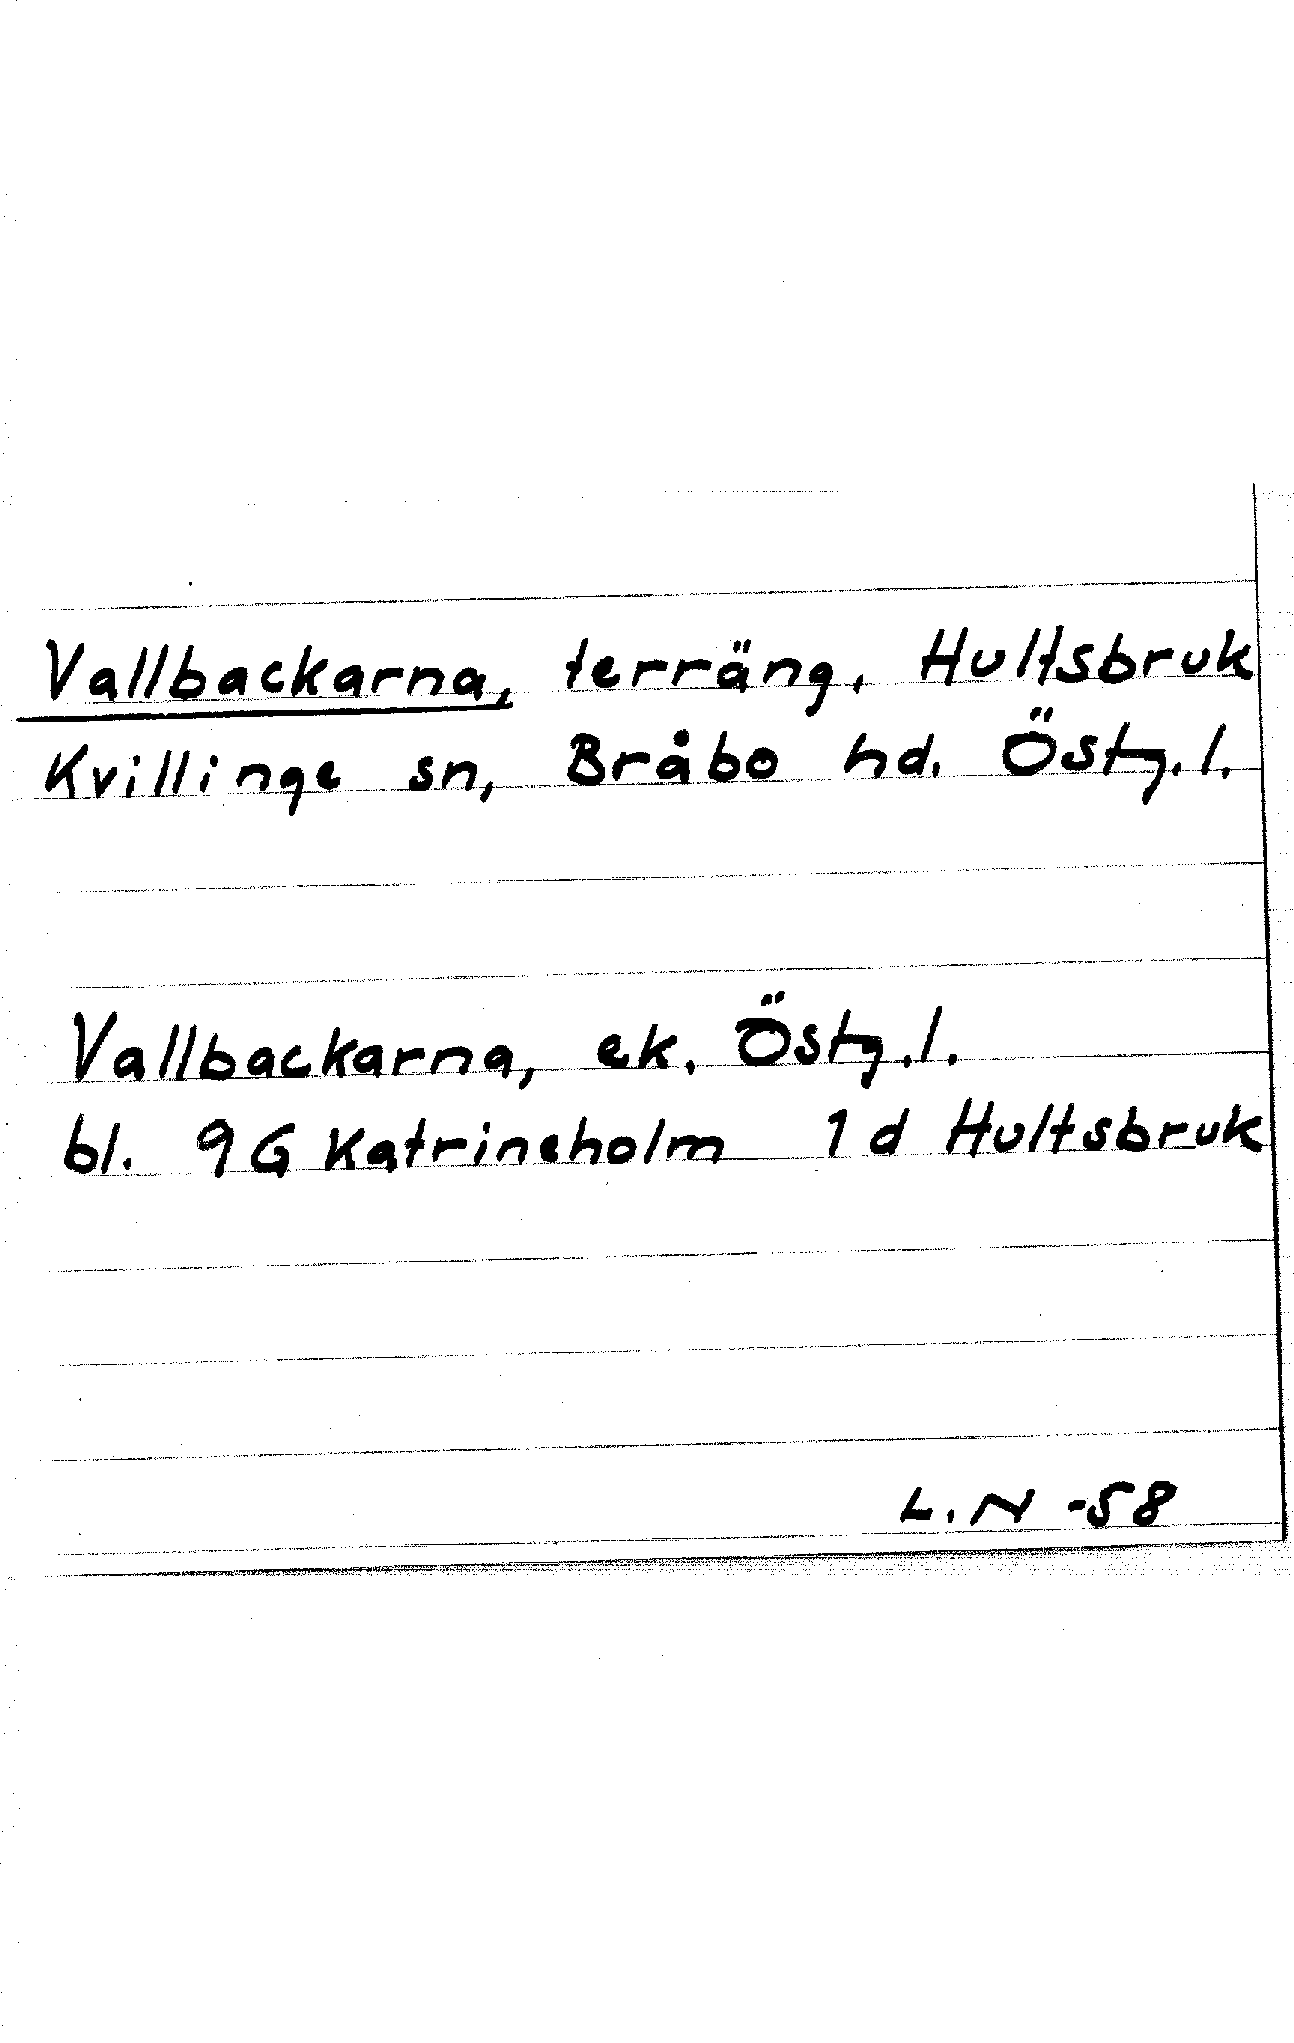 Vallbackarna, terräng, Hultsbruk
Kvillinge sn, Bråbo hd. Östg.l.
Vallbackarna, ek. Östg.l.
bl. 9G Katrineholm 1d Hultsbruk
L.N -58